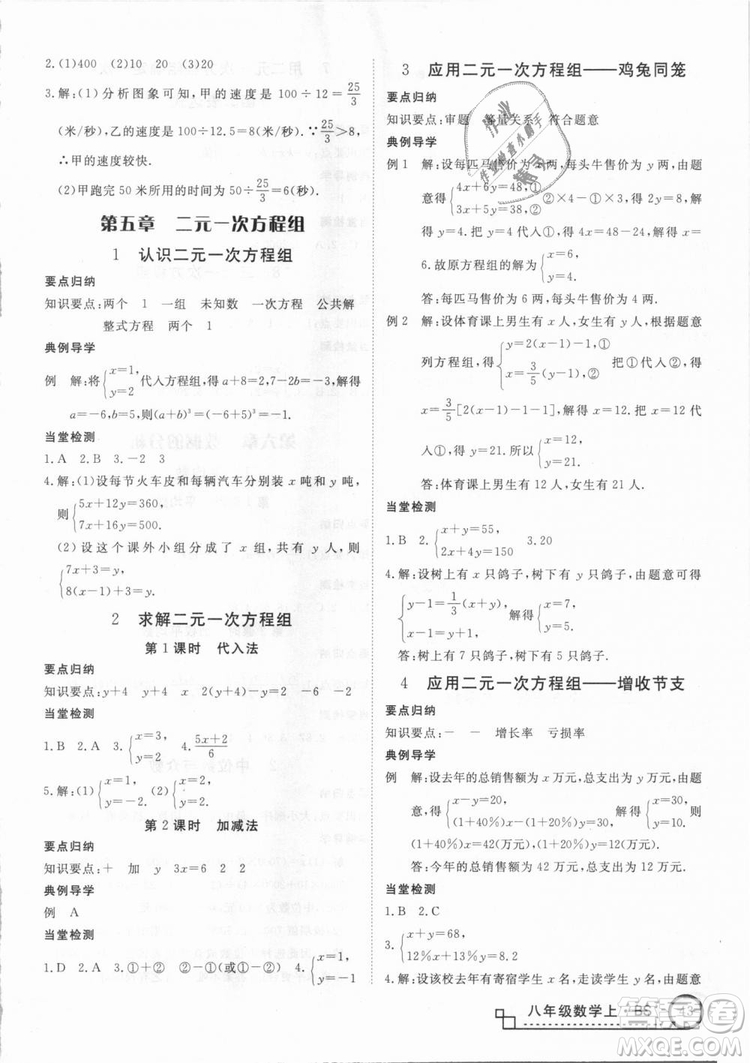 2.(1)400 (2)10 (3)20
3.解:(1)分析图象可知,甲的速度是100÷12=25/3
(米/秒),乙的速度是100÷12.5=8(米/秒).∵25/3>8,
∴甲的速度快.
(2)甲跑完50米所用的时间为50÷25/3=6(秒).
第五章 二元一次方程组
1 认识二元一次方程组
要点归纳
知识要点:两个 1 一组 未知数 一次方程 公共解
整式方程 两个 1
典例导学
例 解:将{x=1, y=2 代入方程组,得a+8=2,7-2b=9.解得
a=-6,b=-1,则(a+b)³=-1.
当堂检测
1.A 2.B 3.-12
4.解:(1)设每节火车皮和每辆汽车分别装x吨和y吨,
则{5x+12y=360, 7x+16y=500.
(2)设这个课外小组分成x组,共有y人,则
{7x+3=y, 8(x-1)+3=y.
2 求解二元一次方程组
第1课时 代入法
要点归纳
知识要点:y+4 y+4 x 2(y+4)-y=6 -2 -2
当堂检测
1.B 2.A 3.{x=3, y=2 4.(5x+2)/6
5.解:(1){x=1, y=2. (2){x=2, y=1.
第2课时 加减法
要点归纳
知识要点:+ 加 y 3x=6 2 2
典例导学
例 A
当堂检测
1.D 2.A 3.①+② ②-①(或①-②) 4.{x=1, y=-1
3 应用二元一次方程组——鸡兔同笼
要点归纳
知识要点:审题 等量关系 符合题意
典例导学
例1 解:设每匹马售价为x两,每头牛售价为y两.由题
意得{4x+6y=48,① 2x+5y=38,② ②×2-①×1,得4y=
28,∴y=7.把y=7代入①,得4x+6×7=48,∴x
=6.故原方程组的解是{x=6, y=7.
答:每匹马的售价为6两,每头牛的售价为7两.
例2 解:设体育课上男生有x人,女生有y人,由题意
列方程组,得{x=2(y-1)-1,① y=3/5(x-1).② 把①代入②,得
x=3/5[2(y-1)-1-1],解得y=12.把y=12代入
①,得x=2×(12-1)-1=21.∴{x=21, y=12.
答:体育课上男生有21人,女生有12人.
当堂检测
1.B 2.{x+y=55, 2x+4y=150 3.20
4.解:设树上有x只鸽子,树下有y只鸽子,由题意可得
{y-1=1/3(x+y) x-1=y+1 整理可得{x=7, y=5.
答:树上有7只鸽子,树下有5只鸽子.
4 应用二元一次方程组——增收节支
要点归纳
知识要点:- - 增长率 亏损率
典例导学
例 解:设去年的总销售额x万元,总支出y万元.由题
意,得{x-y=10, (1+40%)x-(1+20%)y=18. 解得{x=30, y=20.∴
(1+40%)x=42(万元),(1+20%)y=24(万元)
答:今年的总销售额为42万元,总支出为24万元.
当堂检测
1.B 2.C
3.{x+y=68, 12%x+13%y=8.2
4.解:设该校去年有寄宿学生x名,走读学生y名,由题意
八年级数学上 BS